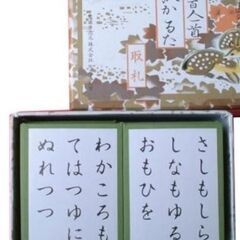 かるた
取札
さしもしら
しなもゆる
おもひを
わかころも
てはつゆに
ぬれつつ